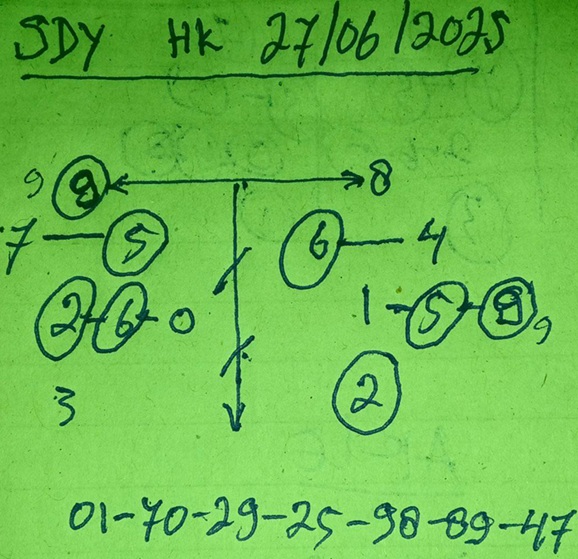 SDY HK 27/06/2025
9 8 8
7 — 5 6 — 4
2 - 6 - 0 1 - 5 - 8 9
3 2
01-70-29-25-98-89-47